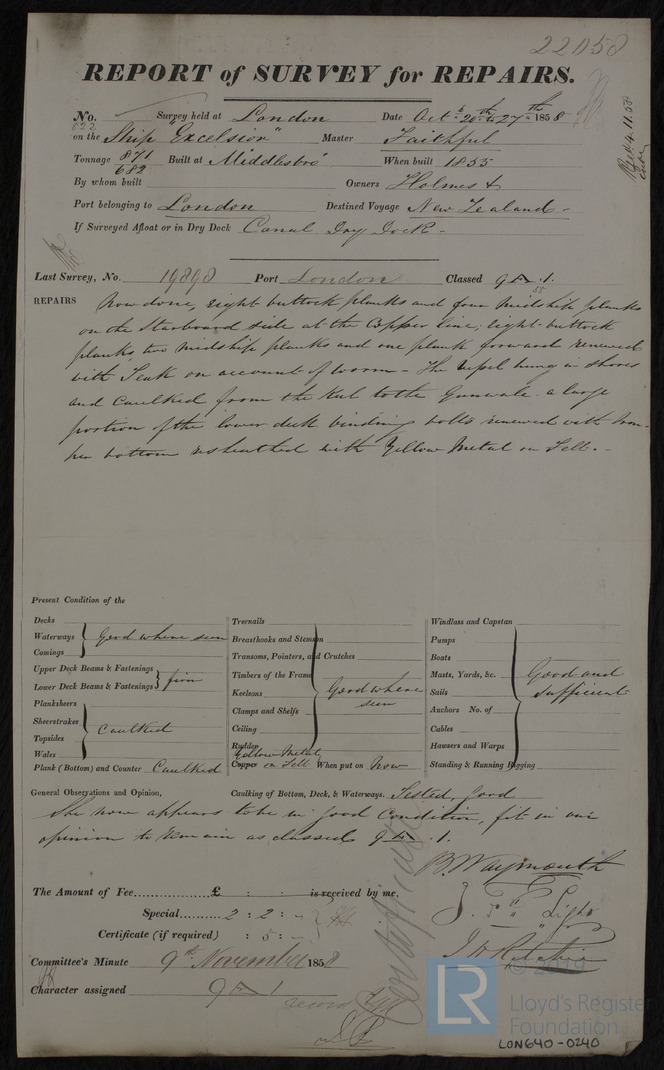 22050
REPORT of SURVEY for REPAIRS.
No. Survey held at London Date Octr 20th to 27th 1858
on the Ship "Excelsior" Master Faithful
Tonnage 871 Built at Middlesbro' When built 1855
682
By whom built Owners Holmes &
Port belonging to London Destined Voyage New Zealand -
If Surveyed Afloat or in Dry Dock Canal Dry Dock -
Last Survey, No. 19898 Port London Classed 9 A 1.
55
REPAIRS Now done, eight buttock planks and four midship planks
on the Starboard side at the Copper line; eight buttock
planks, two midship planks and one plank forward renewed
with Teak on account of worm - The vessel hung in shores
and Caulked from the Keel to the Gunwale a large
portion of the lower deck binding bolts renewed with Iron -
her bottom resheathed with Yellow Metal on Felt. -
Present Condition of the
Decks
Waterways Good where seen
Comings
Upper Deck Beams & Fastenings
Lower Deck Beams & Fastenings firm
Planksheers
Sheerstrakes
Topsides Caulked
Wales
Plank (Bottom) and Counter Caulked
Treenails
Breasthooks and Stemson
Transoms, Pointers, and Crutches
Timbers of the Frame
Keelsons Good where seen
Clamps and Shelfs
Ceiling
Rudder
Yellow Metal
Copper on Felt When put on Now
Windlass and Capstan
Pumps
Boats
Masts, Yards, &c. Good and
Sails sufficient
Anchors No. of
Cables
Hawsers and Warps
Standing & Running Rigging
General Observations and Opinion, Caulking of Bottom, Deck, & Waterways. Tested, good
She now appears to be in good Condition, fit in our
opinion to remain as classed 9 A 1.
B. Waymouth
J. Light
J H Ritchie
The Amount of Fee £ : : is received by me,
Special 2 : 2 : -
Certificate (if required) : 5 : -
Committee's Minute 9th November 1858
Character assigned 9 A 1
Certificate
© 2019
LR
Lloyd's Register
Foundation
LON640-0240